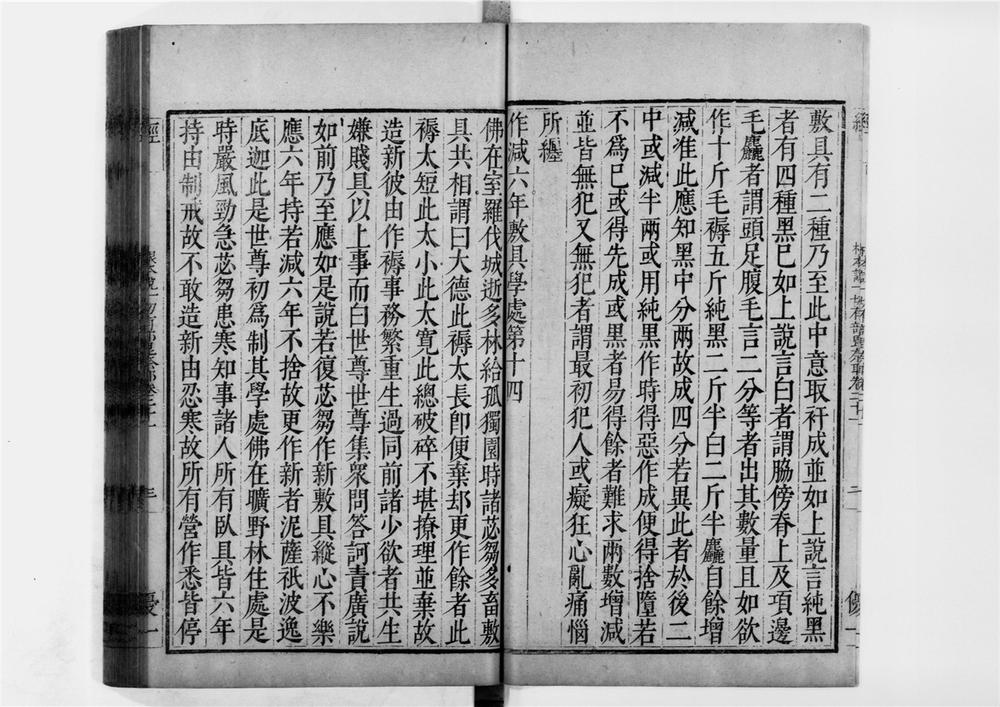 敷具有二種乃至此中意取杆成並如上說言純黑
者有四種黑已如上說言白者謂脇傍脊上及項邊
毛麤者謂頭足腹毛言二分等者出其數量且如欲
作十斤毛褥五斤純黑二斤半白二斤半麤自餘增
減准此應知黑中分兩故成四分若異此者於後二
中或減半兩或用純黑作時得惡作成便得捨墮若
不爲已或得先成或黑者易得餘者難求兩數增減
並皆無犯又無犯者謂最初犯人或癡狂心亂痛惱
所纏
作減六年敷具學處第十四
佛在室羅伐城逝多林給孤獨園時諸苾芻多畜敷
具共相謂曰大德此褥太長卽便棄却更作餘者此
褥太短此太小此太寬此總破碎不堪撩理並棄故
造新彼由作褥事務繁重生過同前諸少欲者共生
嫌賤具以上事而白世尊世尊集衆問答訶責廣說
如前乃至應如是說若復苾芻作新敷具縱心不樂
應六年持若減六年不捨故更作新者泥薩祇波逸
底迦此是世尊初爲制其學處佛在曠野林住處是
時嚴風勁急苾芻患寒知事諸人所有臥具皆六年
持由制戒故不敢造新由忍寒故所有營作悉皆停